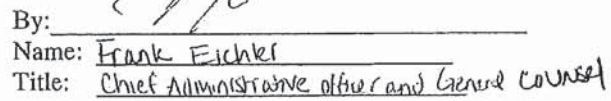 By:
Name: Frank Eichler
Title: Chief Administrative officer and General Counsel